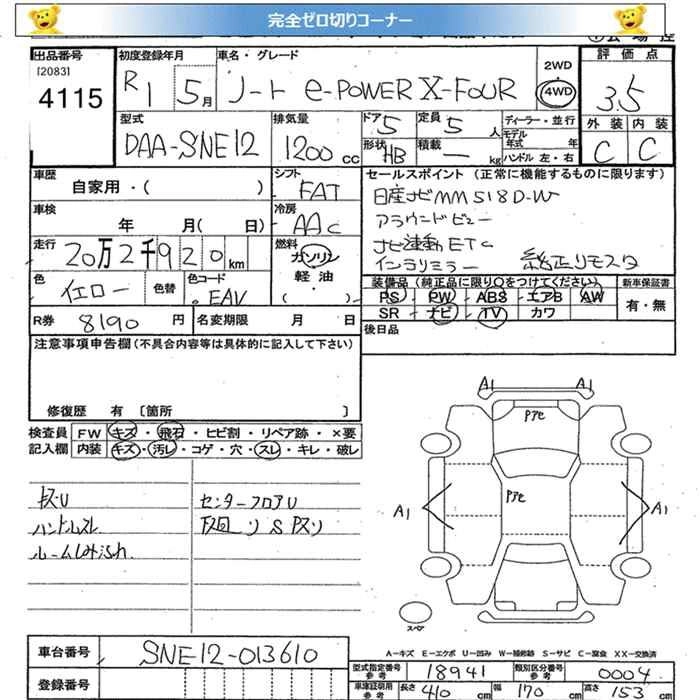 完全ゼロ切りコーナー
出品番号 初度登録年月 車名・グレード 2WD 評価点
[2083] R1 5月 ノート e-POWER X-FOUR 4WD 3.5
4115
型式 排気量 ドア 5 定員 5人 ディーラー・並行 外装 内装
DAA-SNE12 1200cc 形状 HB 積載 ー kg モデル年式 年 C C
ハンドル 左・右
車歴 シフト セールスポイント (正常に機能するものに限ります)
自家用・( ) FAT 日産ナビMM518D-W
車検 冷房 アラウンドビュー
年 月( 日) AAC ナビ連動ETC
走行 燃料 インテリミラー 純正リモスタ
20万2千920km ガソリン
色 色替 色コード 軽油・ 装備品 (純正品に限り○をつけてください) 新車保証書
イエロー EAV ( ) PS PW ABS エアB AW 有・無
R券 8190円 名変期限 月 日 SR ナビ TV カワ
後日品
注意事項申告欄 (不具合内容等は具体的に記入して下さい)
修復歴 有 [箇所 ]
検査員 FW キズ・飛石・ヒビ割・リペア跡・×要
記入欄 内装 キズ・汚レ・コゲ・穴・スレ・キレ・破レ
A1 A1
Pアセ
Pアセ
A1 A1
ハンドルスレ
センターフロアU
スペア
A-キズ E-エクボ U-凹み W-補修跡 S-サビ C-腐食 XX-交換済
車台番号 SNE12-013610
登録番号
型式指定番号 参考 18941 類別区分番号 参考 0004
車庫証明用 参考 長さ 410cm 幅 170cm 高さ 153cm